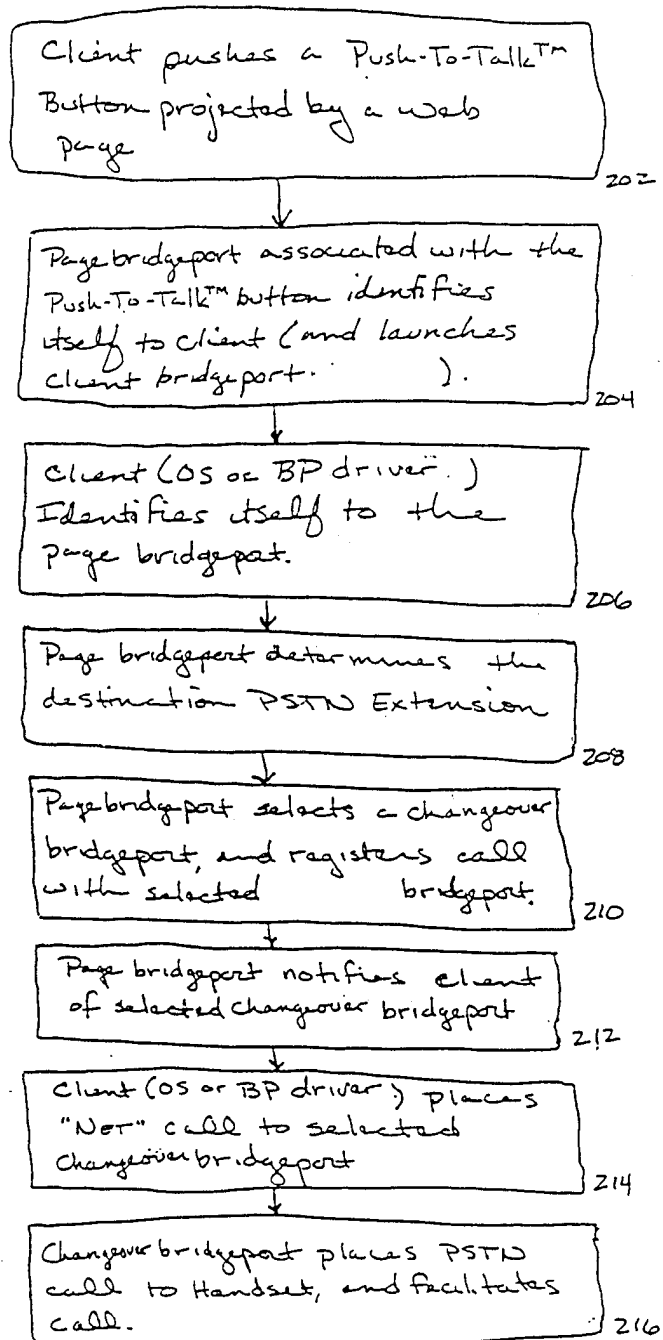 Client pushes a Push-To-Talk™
Button projected by a web
page
202
Page bridgeport associated with the
Push-To-Talk™ button identifies
itself to client (and launches
client bridgeport. ).
204
Client (OS or BP driver.)
Identifies itself to the
page bridgeport.
206
Page bridgeport determines the
destination PSTN Extension
208
Page bridgeport selects a changeover
bridgeport, and registers call
with selected bridgeport.
210
Page bridgeport notifies client
of selected changeover bridgeport
212
Client (OS or BP driver) places
"NET" call to selected
changeover bridgeport
214
Changeover bridgeport places PSTN
call to Handset, and facilitates
call.
216